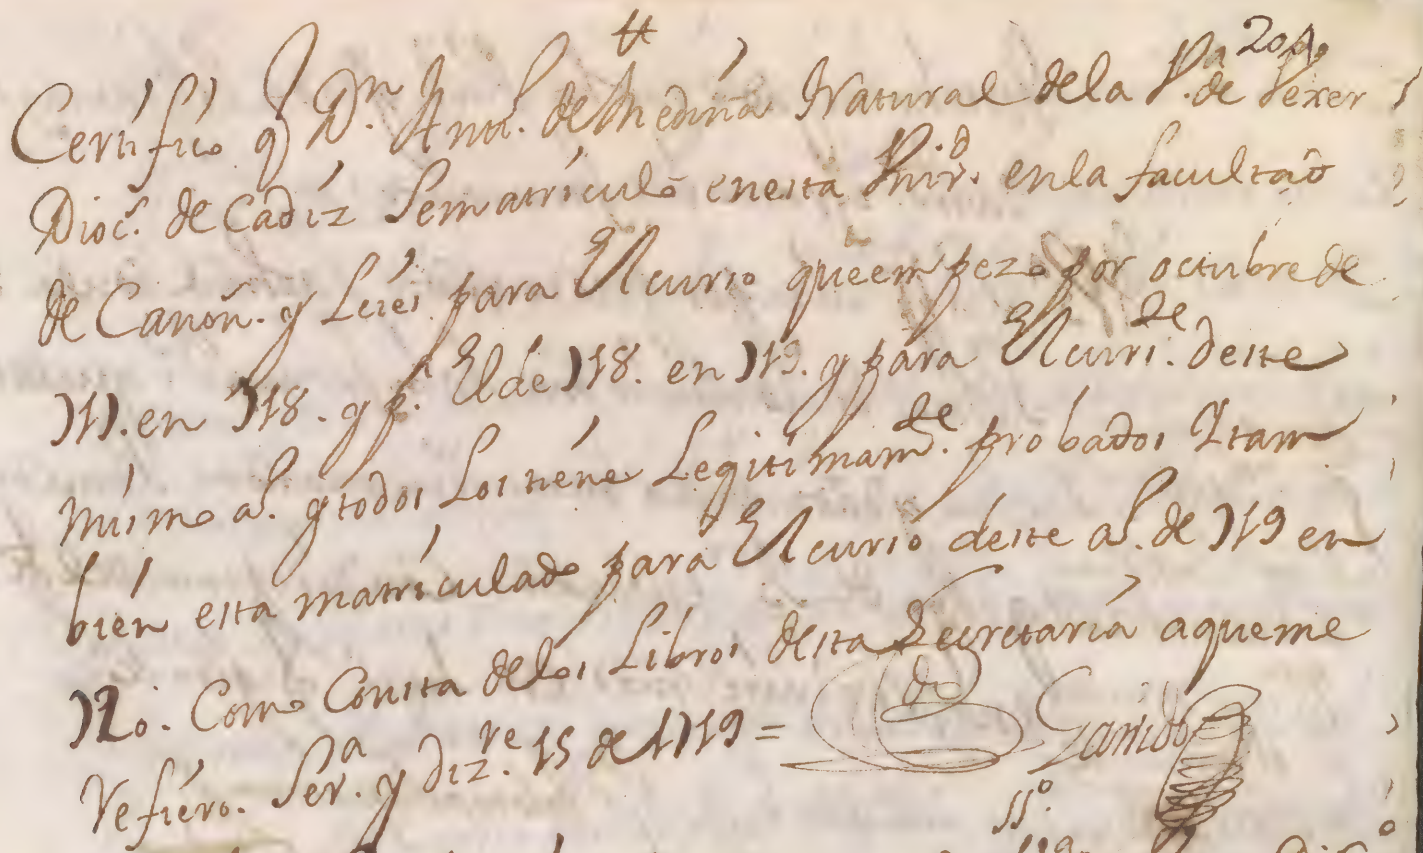 tt
Certifico q Dn. Antt. de Medina Natural de la Va. de Vexer
Dioc. de Cadiz se matriculó en esta Unid. en la facultad
de Canon. y Leies para El curso que empezo por octubre de
717. en 718. y p. El de 718. en 719. y para El curs. de este
mismo a. y todos los tiene Legitimamte. probados Y tam
bien esta matriculado para El curso deste a. de 719 en
720. Como Consta de los Libros desta Secretaria a que me
refiero. Sera. y dizre. 15 de 1719 =
Garrido